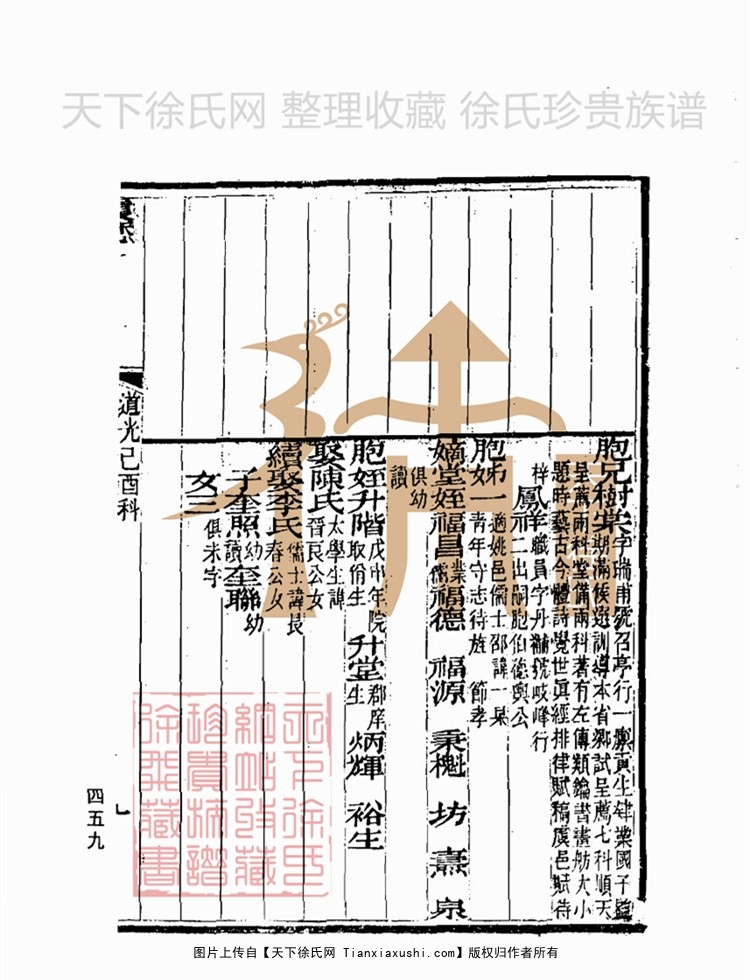 天下徐氏网 整理收藏 徐氏珍贵族谱
胞兄樹棠字瑞甫號召亭行一廩貢生肄業國子監
期滿候選訓導本省鄉試呈薦七科順天
呈薦兩科堂備兩科著有左傳類鑰書畫舫大小
題時藝古今體詩覺世眞經排律賦稿虞邑賦待
梓
鳳祥職員字丹
號岐峰行
二出嗣胞伯德輿公
胞姊一適姚邑儒士邵諱一
青年守志待旌 節孝
嫡堂姪福昌業儒 福德 福源 秉槐 坊 燾 泉
俱幼讀
胞姪升階戊申年院取佾生 升堂郡庠生 炳輝 裕生
娶陳氏太學生諱晉良公女
續娶李氏儒士諱長春公女
子奎照幼讀 奎聯幼
女二俱未字
道光己酉科
四五九
天下徐氏網站收藏珍貴族譜徐氏藏書
图片上传自【天下徐氏网 Tianxiaxushi.com】版权归作者所有